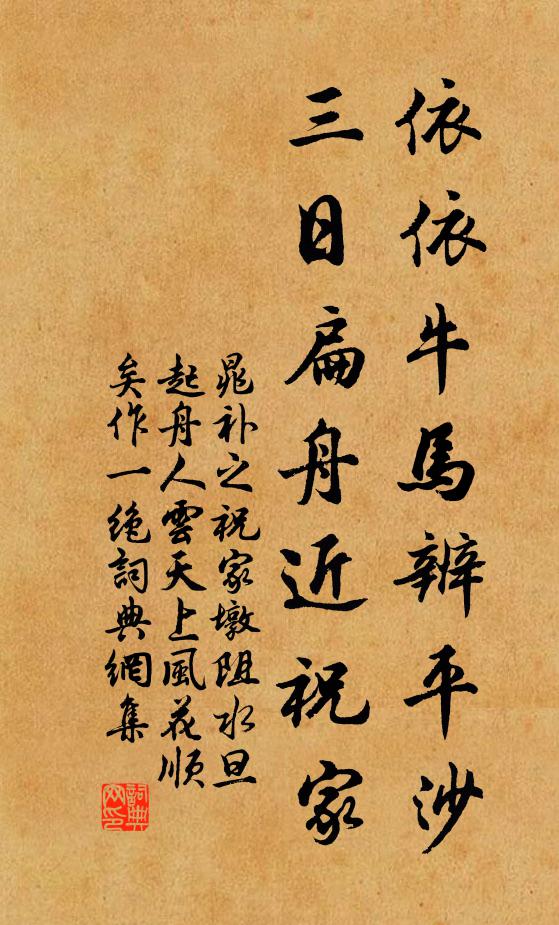 依依牛馬辨平沙
三日扁舟近祝家
晁补之祝家墩阻水旦
起舟人雲天上風花順
矣作一绝詞典網集
詞典
网印